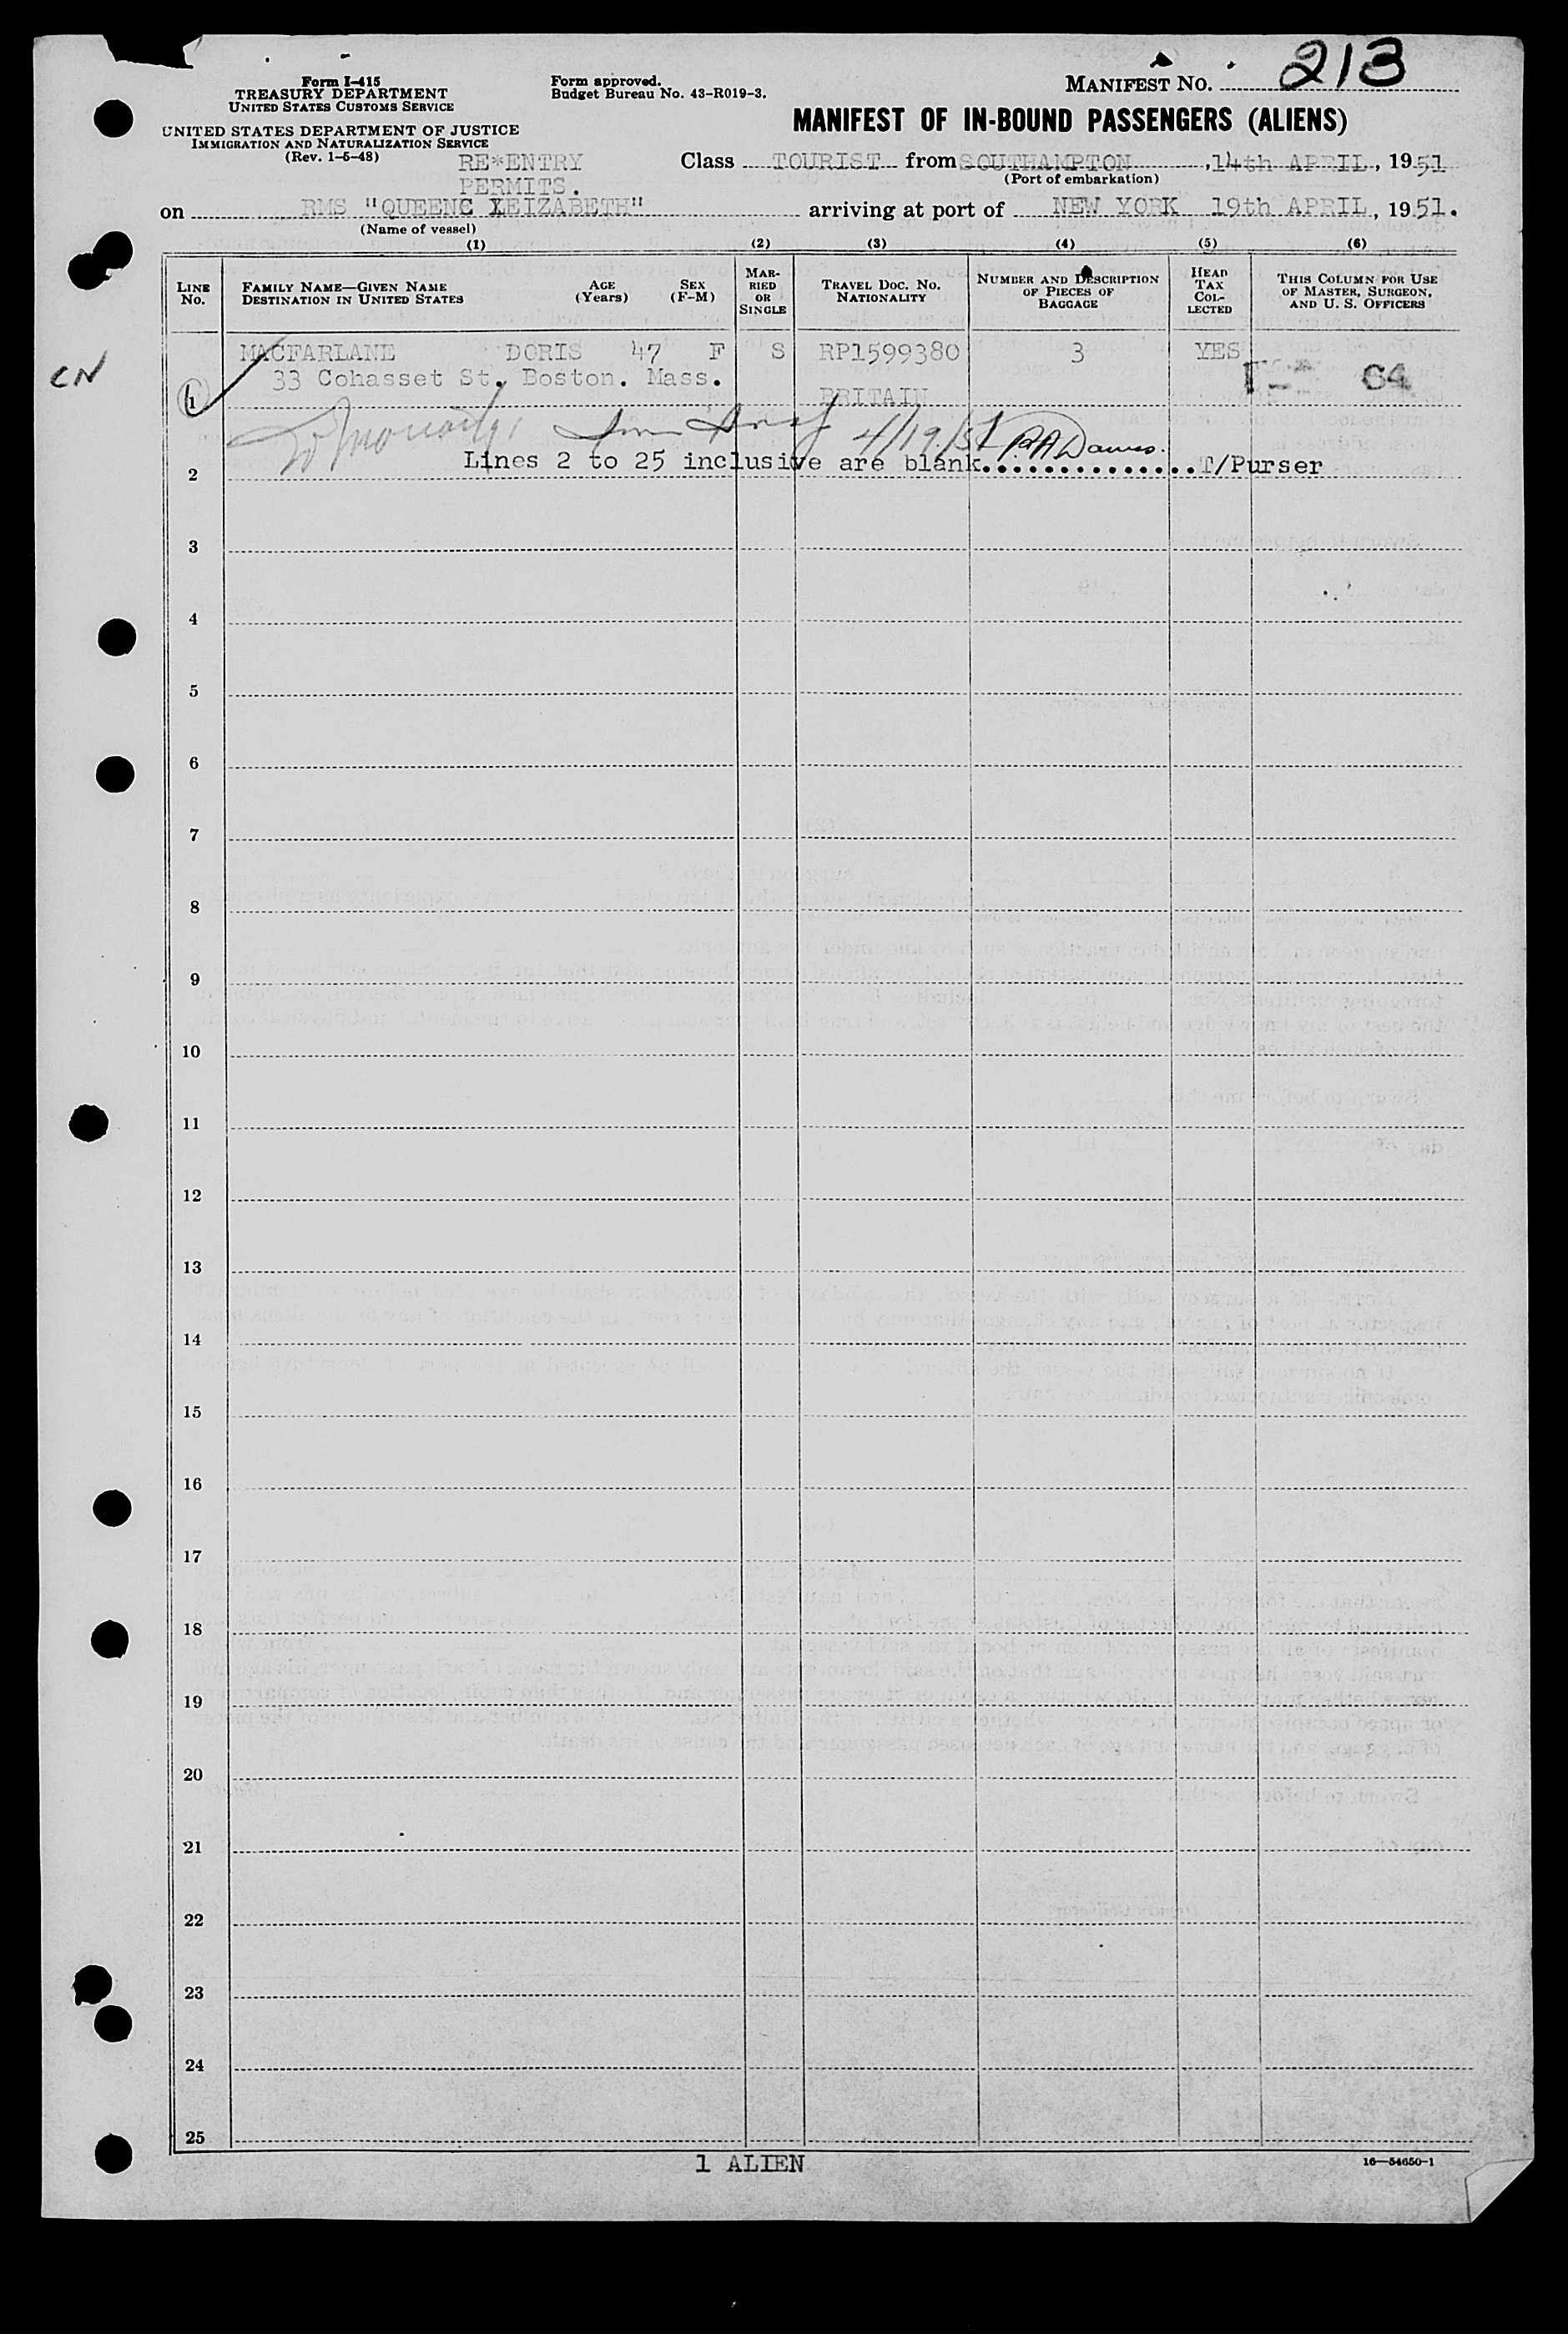 Form I-415
TREASURY DEPARTMENT
UNITED STATES CUSTOMS SERVICE
UNITED STATES DEPARTMENT OF JUSTICE
IMMIGRATION AND NATURALIZATION SERVICE
(Rev. 1-5-48)
Form approved.
Budget Bureau No. 43-R019-3.
MANIFEST NO. 213
MANIFEST OF IN-BOUND PASSENGERS (ALIENS)
RE*ENTRY
PERMITS.
Class TOURIST from SOUTHAMPTON, 14th APRIL, 1951
(Port of embarkation)
on RMS "QUEEN ELIZABETH" arriving at port of NEW YORK 19th APRIL, 1951.
(Name of vessel)
(1) (2) (3) (4) (5) (6)
LINE No.
FAMILY NAME—GIVEN NAME
DESTINATION IN UNITED STATES
AGE (Years)
SEX (F-M)
MARRIED OR SINGLE
TRAVEL DOC. NO.
NATIONALITY
NUMBER AND DESCRIPTION OF PIECES OF BAGGAGE
HEAD TAX COLLECTED
THIS COLUMN FOR USE OF MASTER, SURGEON, AND U. S. OFFICERS
CN
1 MACFARLANE DORIS 47 F S RP1599380 3 YES
33 Cohasset St, Boston. Mass.
BRITAIN
64
4/19/51
2 Lines 2 to 25 inclusive are blank..............T/Purser
3
4
5
6
7
8
9
10
11
12
13
14
15
16
17
18
19
20
21
22
23
24
25
1 ALIEN
16—54650-1